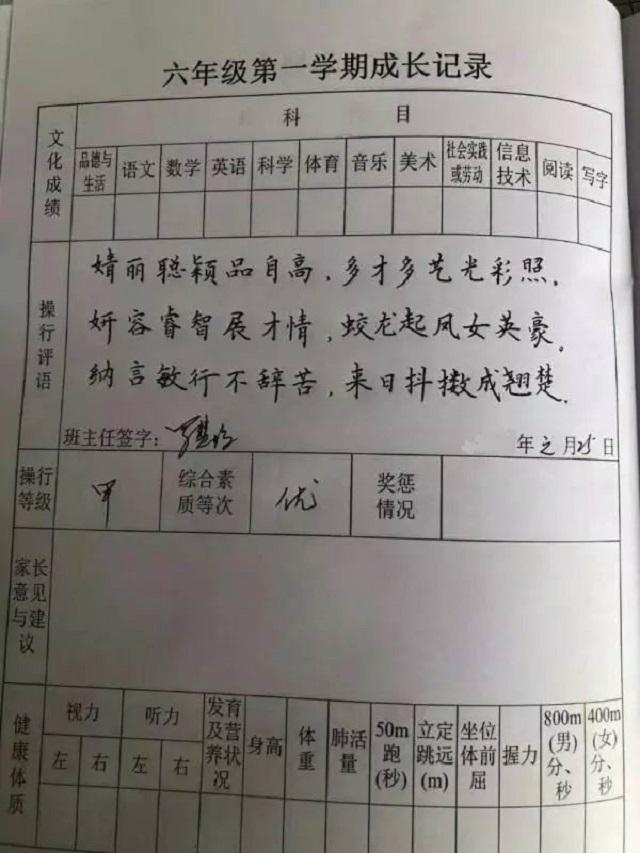 六年级第一学期成长记录
文化成绩
科 目
品德与生活 语文 数学 英语 科学 体育 音乐 美术 社会实践或劳动 信息技术 阅读 写字
操行评语
婧丽聪颖品自高，多才多艺光彩照。
妍容睿智展才情，蛟龙起凤女英豪。
纳言敏行不辞苦，来日抖擞成翘楚。
班主任签字： 年 元 月 25 日
操行等级 甲 综合素质等次 优 奖惩情况
家长意见与建议
健康体质
视力 听力 发育及营养状况 身高 体重 肺活量 50m跑(秒) 立定跳远(m) 坐位体前屈 握力 800m(男)分、秒 400m(女)分、秒
左 右 左 右